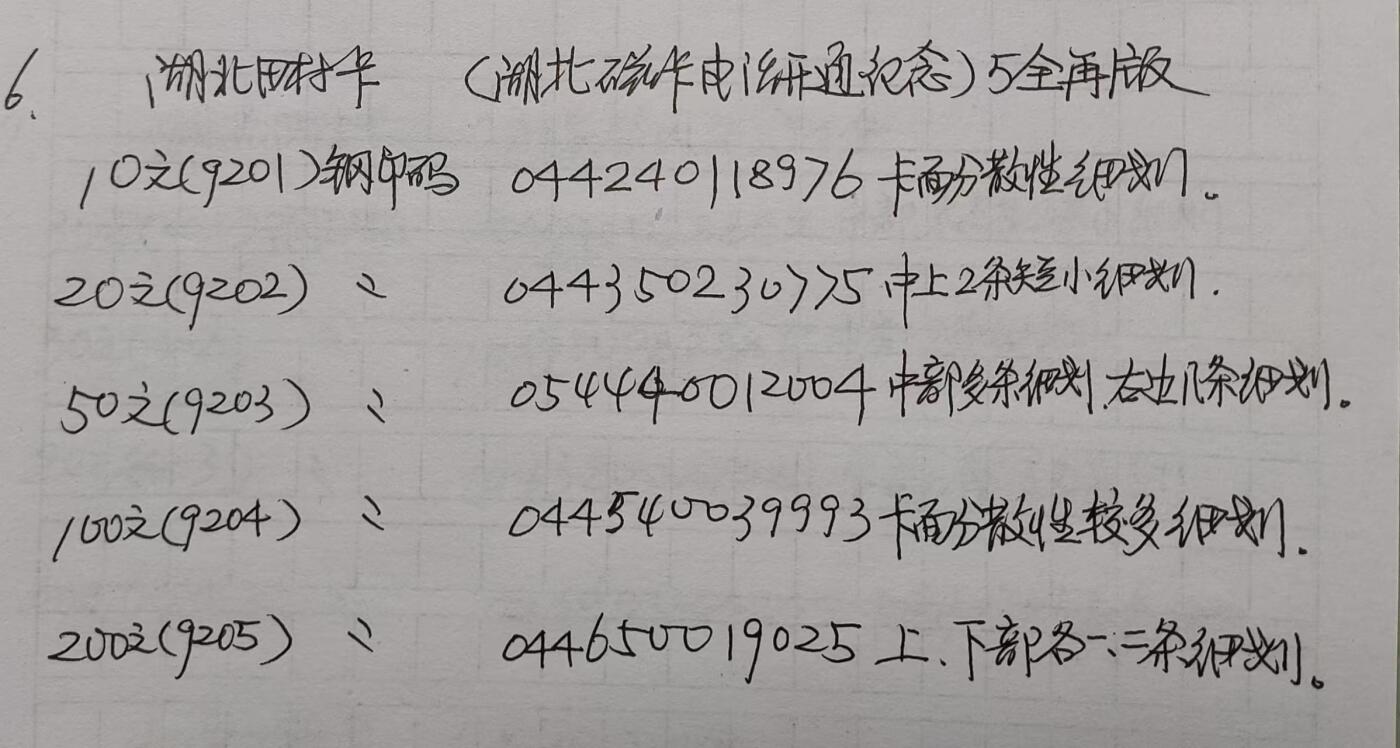 6. 湖北田村卡 (湖北磁卡电话开通纪念)5全再版
10文(9201)钢印码 044240118976 卡面分散性细划。
20文(9202) 〻 044350230775 中上2条短小细划.
50文(9203) 〻 054440012004 中部多条细划.右边几条细划。
100文(9204) 〻 044540039993 卡面分散性较多细划.
200文(9205) 〻 044650019025 上、下部各一、二条细划。